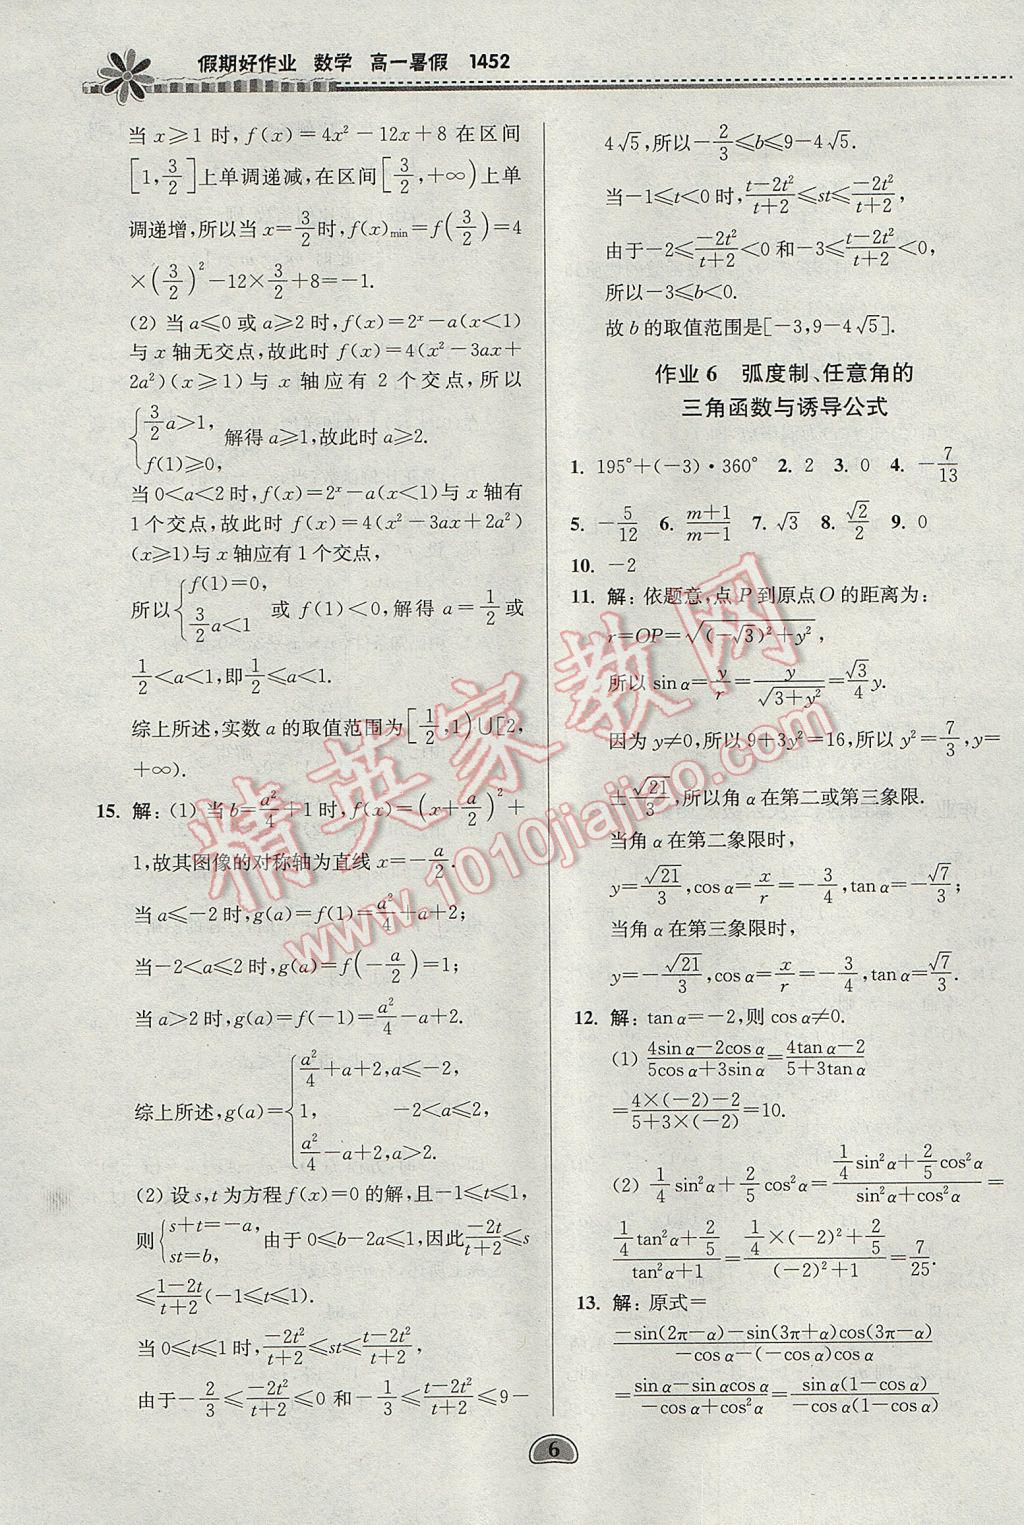 假期好作业 数学 高一暑假 1452
当x≥1时,f(x)=4x²-12x+8在区间
[1,3/2]上单调递减,在区间[3/2,+∞)上单
调递增,所以当x=3/2时,f(x)min=f(3/2)=4
×(3/2)²-12×3/2+8=-1.
(2) 当a≤0或a≥2时,f(x)=2ˣ-a(x<1)
与x轴无交点,故此时f(x)=4(x²-3ax+
2a²)(x≥1)与x轴应有2个交点,所以
{3/2a>1, f(1)≥0, 解得a≥1,故此时a≥2.
当0<a<2时,f(x)=2ˣ-a(x<1)与x轴有
1个交点,故此时f(x)=4(x²-3ax+2a²)
(x≥1)与x轴应有1个交点,
所以{f(1)=0, 3/2a<1 或f(1)<0,解得a=1/2或
1/2<a<1,即1/2≤a<1.
综上所述,实数a的取值范围为[1/2,1)∪[2,
+∞).
15. 解:(1)当b=a²/4+1时,f(x)=(x+a/2)²+
1,故其图像的对称轴为直线x=-a/2.
当a≤-2时,g(a)=f(1)=a²/4+a+2;
当-2<a≤2时,g(a)=f(-a/2)=1;
当a>2时,g(a)=f(-1)=a²/4-a+2.
综上所述,g(a)={a²/4+a+2,a≤-2, 1, -2<a≤2, a²/4-a+2,a>2.
(2) 设s,t为方程f(x)=0的解,且-1≤t≤1,
则{s+t=-a, st=b, 由于0≤b-2a≤1,因此-2t/t+2≤s
≤1-2t/t+2(-1≤t≤1).
当0≤t≤1时,-2t²/t+2≤st≤t-2t²/t+2,
由于-2/3≤-2t²/t+2≤0和-1/3≤t-2t²/t+2≤9-
4√5,所以-2/3≤b≤9-4√5.
当-1≤t<0时,t-2t²/t+2≤st≤-2t²/t+2,
由于-2≤-2t²/t+2<0和-3≤t-2t²/t+2<0,
所以-3≤b<0.
故b的取值范围是[-3,9-4√5].
作业6 弧度制、任意角的
三角函数与诱导公式
1. 195°+(-3)·360° 2. 2 3. 0 4. -7/13
5. -5/12 6. m+1/m-1 7. √3 8. √2/2 9. 0
10. -2
11. 解:依题意,点P到原点O的距离为:
r=OP=√(-√3)²+y²,
所以sinα=y/r=y/√3+y²=√3/4y.
因为y≠0,所以9+3y²=16,所以y²=7/3,y=
±√21/3,所以角α在第二或第三象限.
当角α在第二象限时,
y=√21/3,cosα=x/r=-3/4,tanα=-√7/3;
当角α在第三象限时,
y=-√21/3,cosα=x/r=-3/4,tanα=√7/3.
12. 解:tanα=-2,则cosα≠0.
(1) 4sinα-2cosα/5cosα+3sinα=4tanα-2/5+3tanα
=4×(-2)-2/5+3×(-2)=10.
(2) 1/4sin²α+2/5cos²α=1/4sin²α+2/5cos²α/sin²α+cos²α=
1/4tan²α+2/5/tan²α+1=1/4×(-2)²+2/5/(-2)²+1=7/25.
13. 解:原式=
-sin(2π-α)-sin(3π+α)cos(3π-α)/-cosα-(-cosα)cosα
=sinα-sinαcosα/-cosα+cos²α=sinα(1-cosα)/-cosα(1-cosα)
6
精英家教网
www.1010jiajiao.com